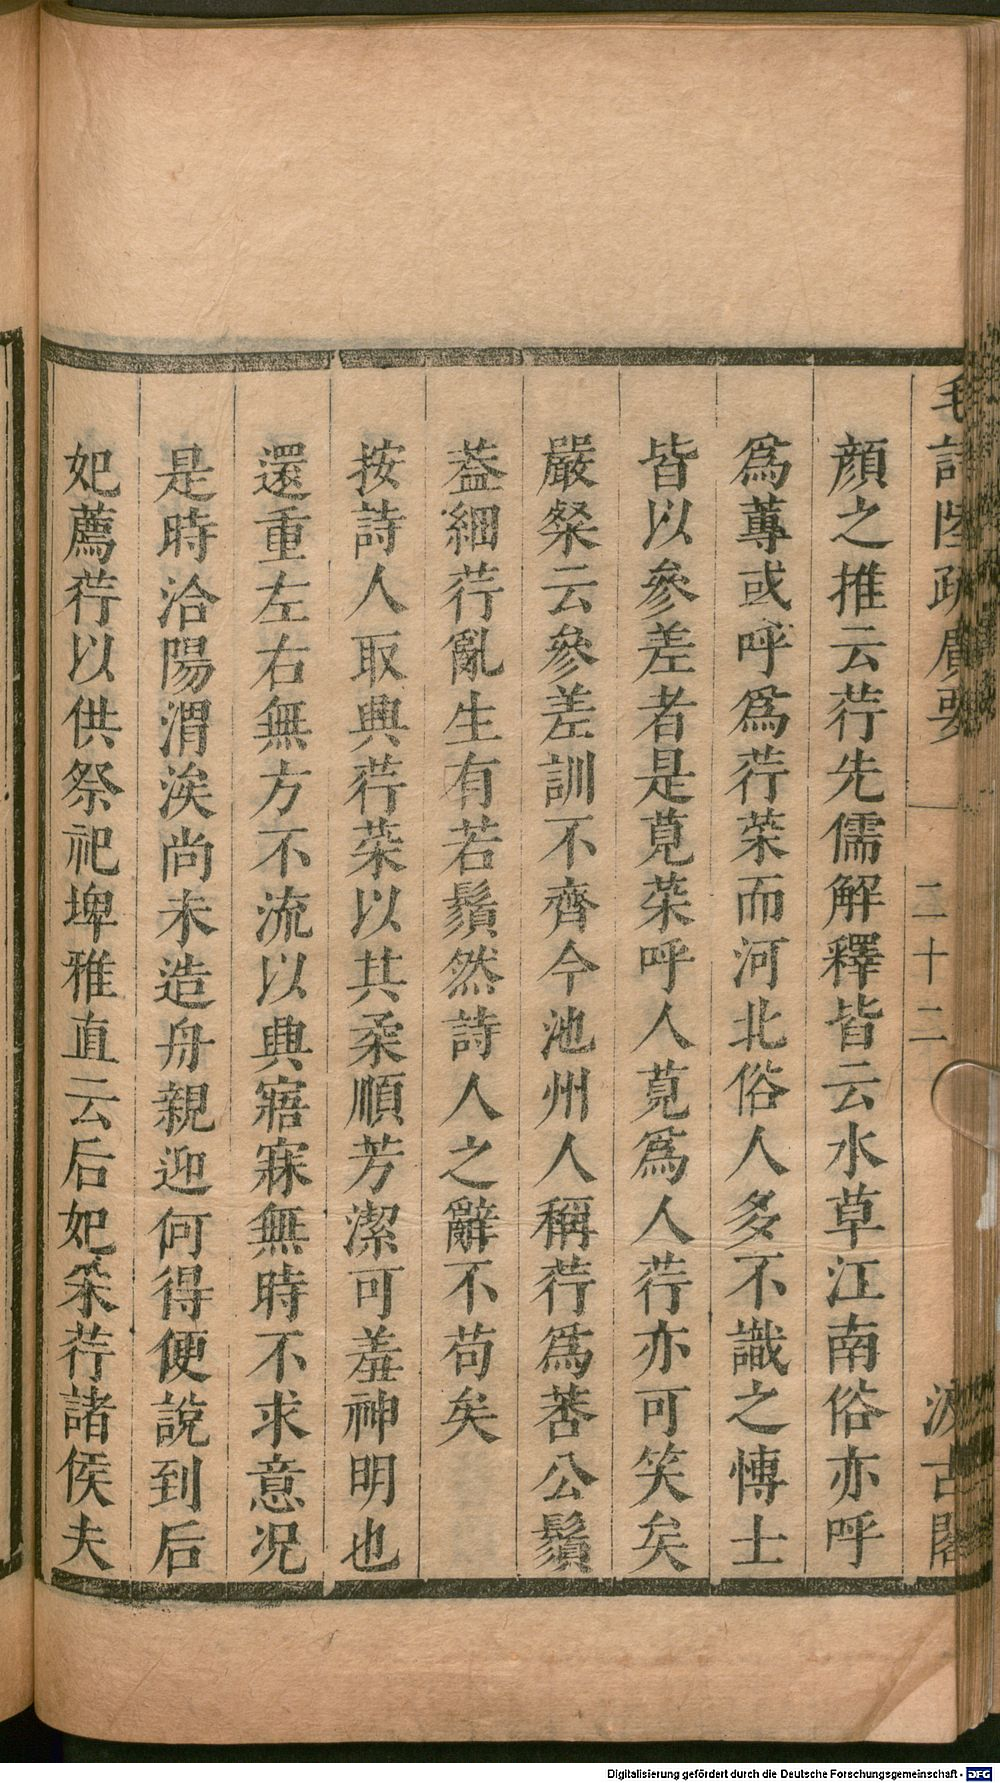 毛詩陸疏廣要
二十二
汲古閣
顔之推云荇先儒解釋皆云水草江南俗亦呼
爲蓴或呼爲荇菜而河北俗人多不識之愽士
皆以參差者是莧菜呼人莧爲人荇亦可笑矣
嚴粲云參差訓不齊今池州人稱荇爲莕公鬚
葢細荇亂生有若鬚然詩人之辭不苟矣
按詩人取興荇菜以其柔順芳潔可羞神明也
還重左右無方不流以興寤寐無時不求意况
是時洽陽渭涘尚未造舟親迎何得便說到后
妃薦荇以供祭祀埤雅直云后妃采荇諸侯夫
Digitalisierung gefördert durch die Deutsche Forschungsgemeinschaft - DFG